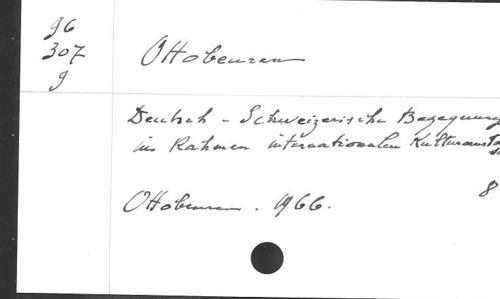 96
307
9
Ottobeuren
Deutsch - Schweizerische Begegnung
im Rahmen internationalen
Ottobeuren. 1966.
8